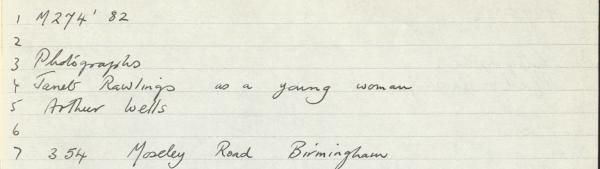 1 M274' 82
2
3 Photographs
4 Janet Rawlings as a young woman
5 Arthur Wells
6
7 354 Moseley Road Birmingham